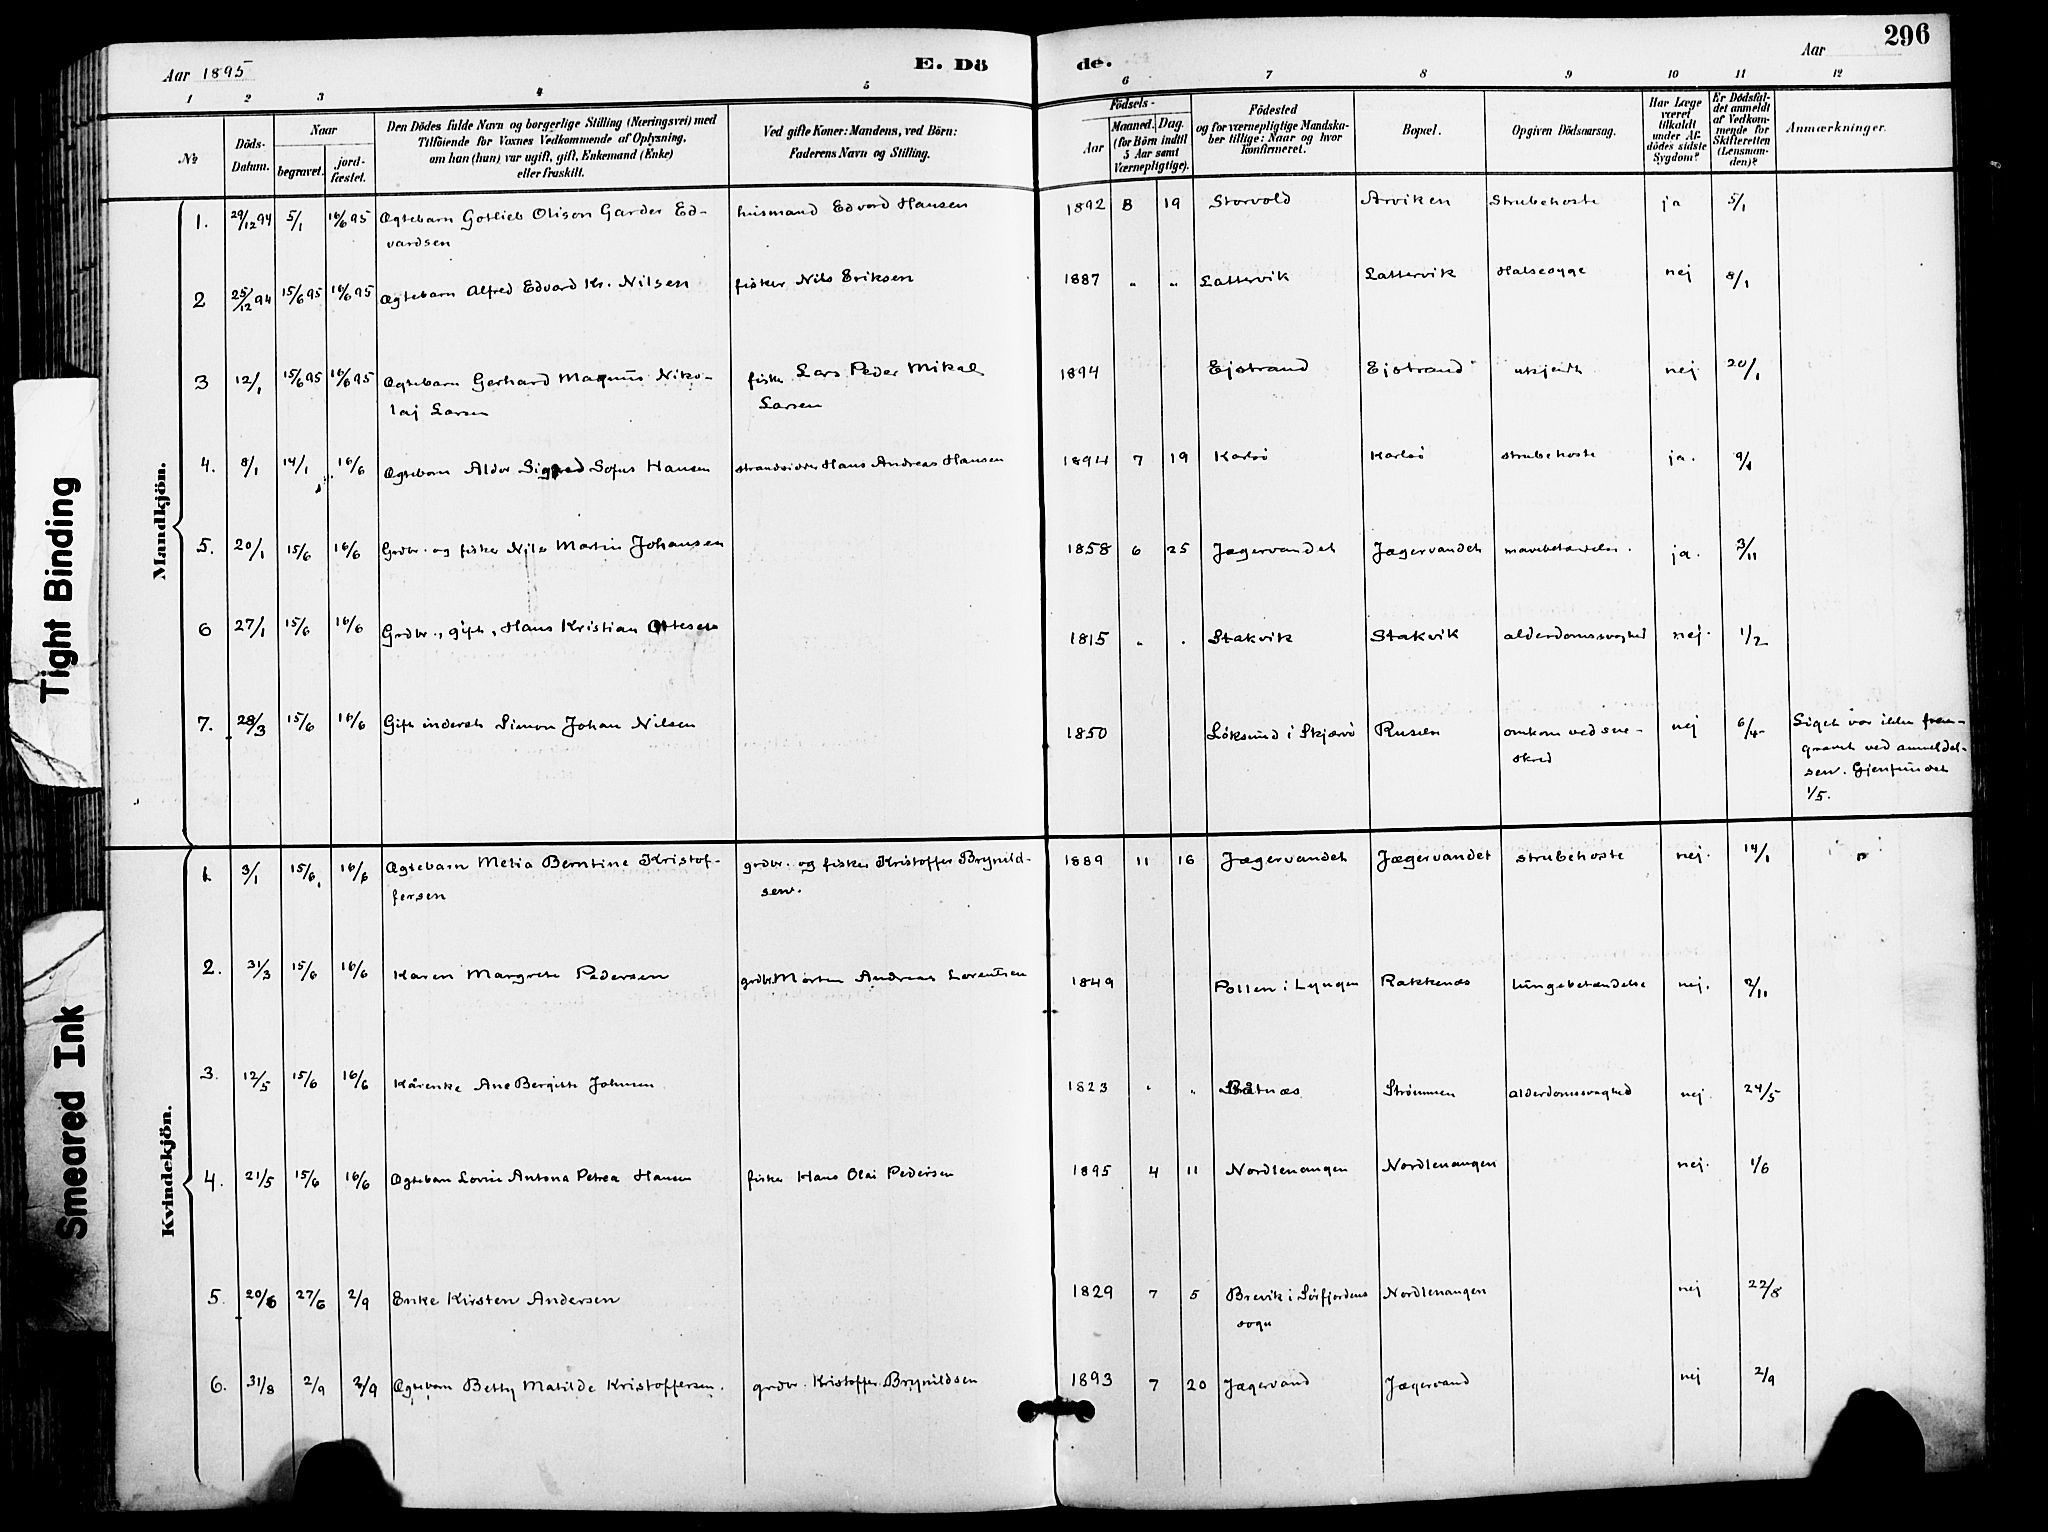 Aar 1895
E. Dö
de.
Aar
296
1 2 3 4 5 6 7 8 9 10 11 12
No
Döds-
Datum.
Naar
begravet.
jord-
fæstet.
Den Dödes fulde Navn og borgerlige Stilling (Næringsvei) med
Tilföiende for Voxnes Vedkommende af Oplysning,
om han (hun) var ugift, gift, Enkemand (Enke)
eller fraskilt.
Ved gifte Koner: Mandens, ved Börn:
Faderens Navn og Stilling.
Födsels-
Aar
Maaned.
Dag.
(for Börn indtil
5 Aar samt
Værnepligtige).
Födested
og for værnepligtige Mandska-
ber tillige: Naar og hvor
konfirmeret.
Bopæl.
Opgiven Dödsaarsag.
Har Læge
været
tilkaldt
under Af-
dödes sidste
Sygdom?
Er Dödsfal-
det anmeldt
af Vedkom-
mende for
Skifteretten
(Lensman-
den)?
Anmærkninger.
Mandkjön.
1. 29/12 94 5/1 16/6 95 Ægtebarn Gotlieb Olison Garder Ed- husmand Edvard Hansen 1892 8 19 Storvold Arviken Strubehoste ja 5/1
vardsen
2 25/12 94 15/6 95 16/6 95 Ægtebarn Alfred Edvard Kr. Nilsen fisker Nils Eriksen 1887 " " Lattervik Lattervik Halsesyge nej 8/1
3 12/1 15/6 95 16/6 95 Ægtebarn Gerhard Magnus Niko- fisker Lars Peder Mikal 1894 Ejstrand Ejstrand ukjendt nej 20/1
laj Larsen Larsen
4. 8/1 14/1 16/6 Ægtebarn Aldor Sigred Sofus Hansen strandsidder Hans Andreas Hansen 1894 7 19 Karlsö Karlsö strubehoste ja. 9/1
5. 20/1 15/6 16/6 Grdbr. og fisker Nils Martin Johansen 1858 6 25 Jægervandet Jægervandet mavebetændelse. ja. 3/11
6 27/1 15/6 16/6 Grdbr., gift, Hans Kristian Ottesen 1815 " . Stakvik Stakvik alderdomssvaghed nej. 1/2
7. 28/3 15/6 16/6 Gift inderst Simon Johan Nilsen 1850 Löksund i Skjærvö Rusæn omkom ved sne- nej 6/4 Liget var ikke frem-
skred gravet ved anmeldel-
sen. Gjenfundet
1/5.
Kvindekjön.
1. 3/1 15/6 16/6 Ægtebarn Metia Berntine Kristof- grdbr. og fisker Kristoffer Brynild- 1889 11 16 Jægervandet Jægervandet strubehoste nej. 14/1
fersen sen.
2. 31/3 15/6 16/6 Karen Margrete Pedersen grdbr. Morten Andreas Lorentsen 1849 Pollen i Lyngen Rakkenæs lungebetændelse nej. 2/11
3. 12/5 15/6 16/6 Kårenke Ane Bergitte Johnsen 1823 " " Båtnæs Strömmen alderdomssvaghed nej. 24/5
4. 21/5 15/6 16/6 Ægtebarn Lovise Antona Petrea Hansen fisker Hans Olai Pedersen 1895 4 11 Nordlenangen Nordlenangen nej. 1/6
5. 20/6 27/6 2/9 Enke Kirsten Andersen 1829 7 5 Brevik i Sörfjordens Nordlenangen nej 22/8
sogn
6. 31/8 2/9 2/9 Ægtebarn Betty Matilde Kristoffersen. grdbr. Kristoffer Brynildsen 1893 7 20 Jægervand Jægervand nej 2/9
Tight Binding
Smeared Ink